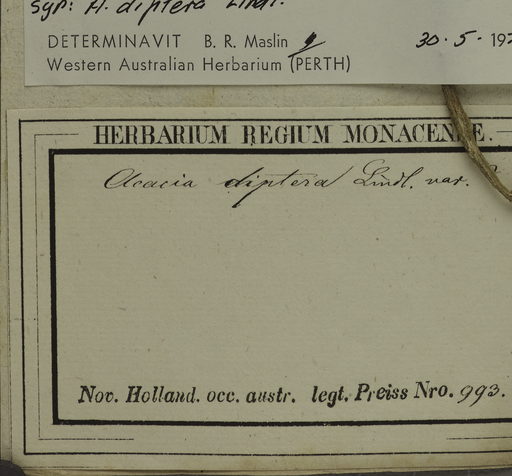 syn: A. diptera Lindl.
DETERMINAVIT B. R. Maslin 30.5.197
Western Australian Herbarium (PERTH)
HERBARIUM REGIUM MONACENSE.
Acacia diptera Lindl. var.
Nov. Holland. occ. austr. legt. Preiss Nro. 993.